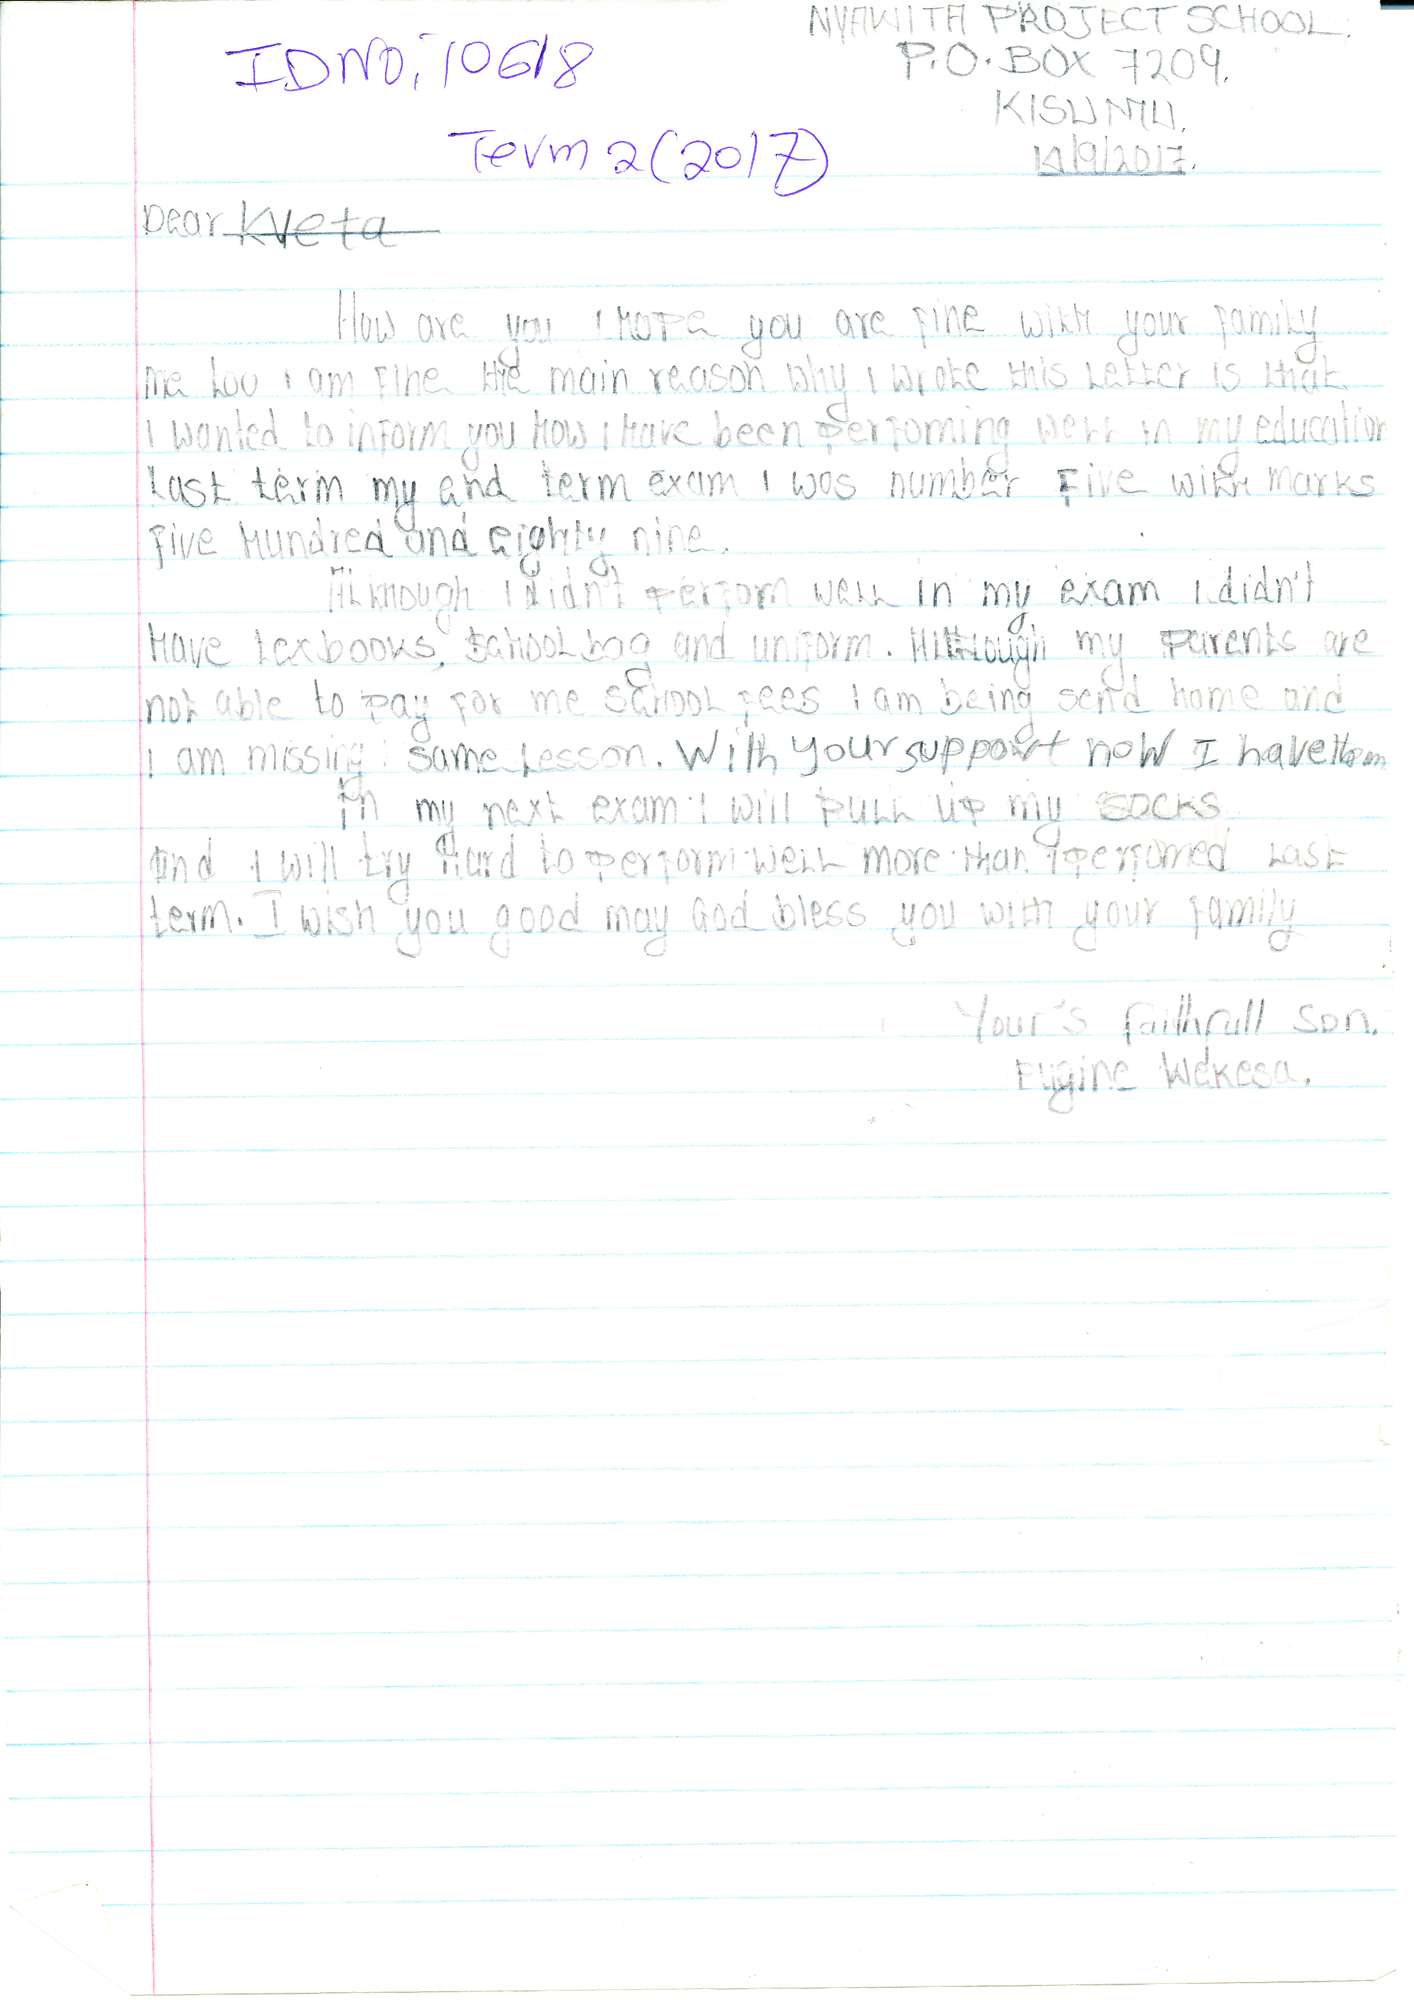 NYAWITA PROJECT SCHOOL.
IDNO; 10618
P.O. BOX 7209,
KISUMU,
Term 2 (2017)
14/9/2017.
Dear Kveta
How are you I Hope you are fine with your family
me too i am fine the main reason why i wrote this letter is that
I wanted to inform you How i Have been performing well in my education
last term my and term exam i was number five with marks
five Hundred and eighty nine.
Although I didn't perform well in my exam i didn't
Have texbooks, school bag and uniform. Although my parents are
not able to pay for me school fees i am being send home and
i am missing same lesson. With your support now I have them
In my next exam i will pull up my socks
and i will try Hard to perform well more than i perfomed last
term. I wish you good may God bless you with your family
Your's faithfull son.
Eugine Wekesa.